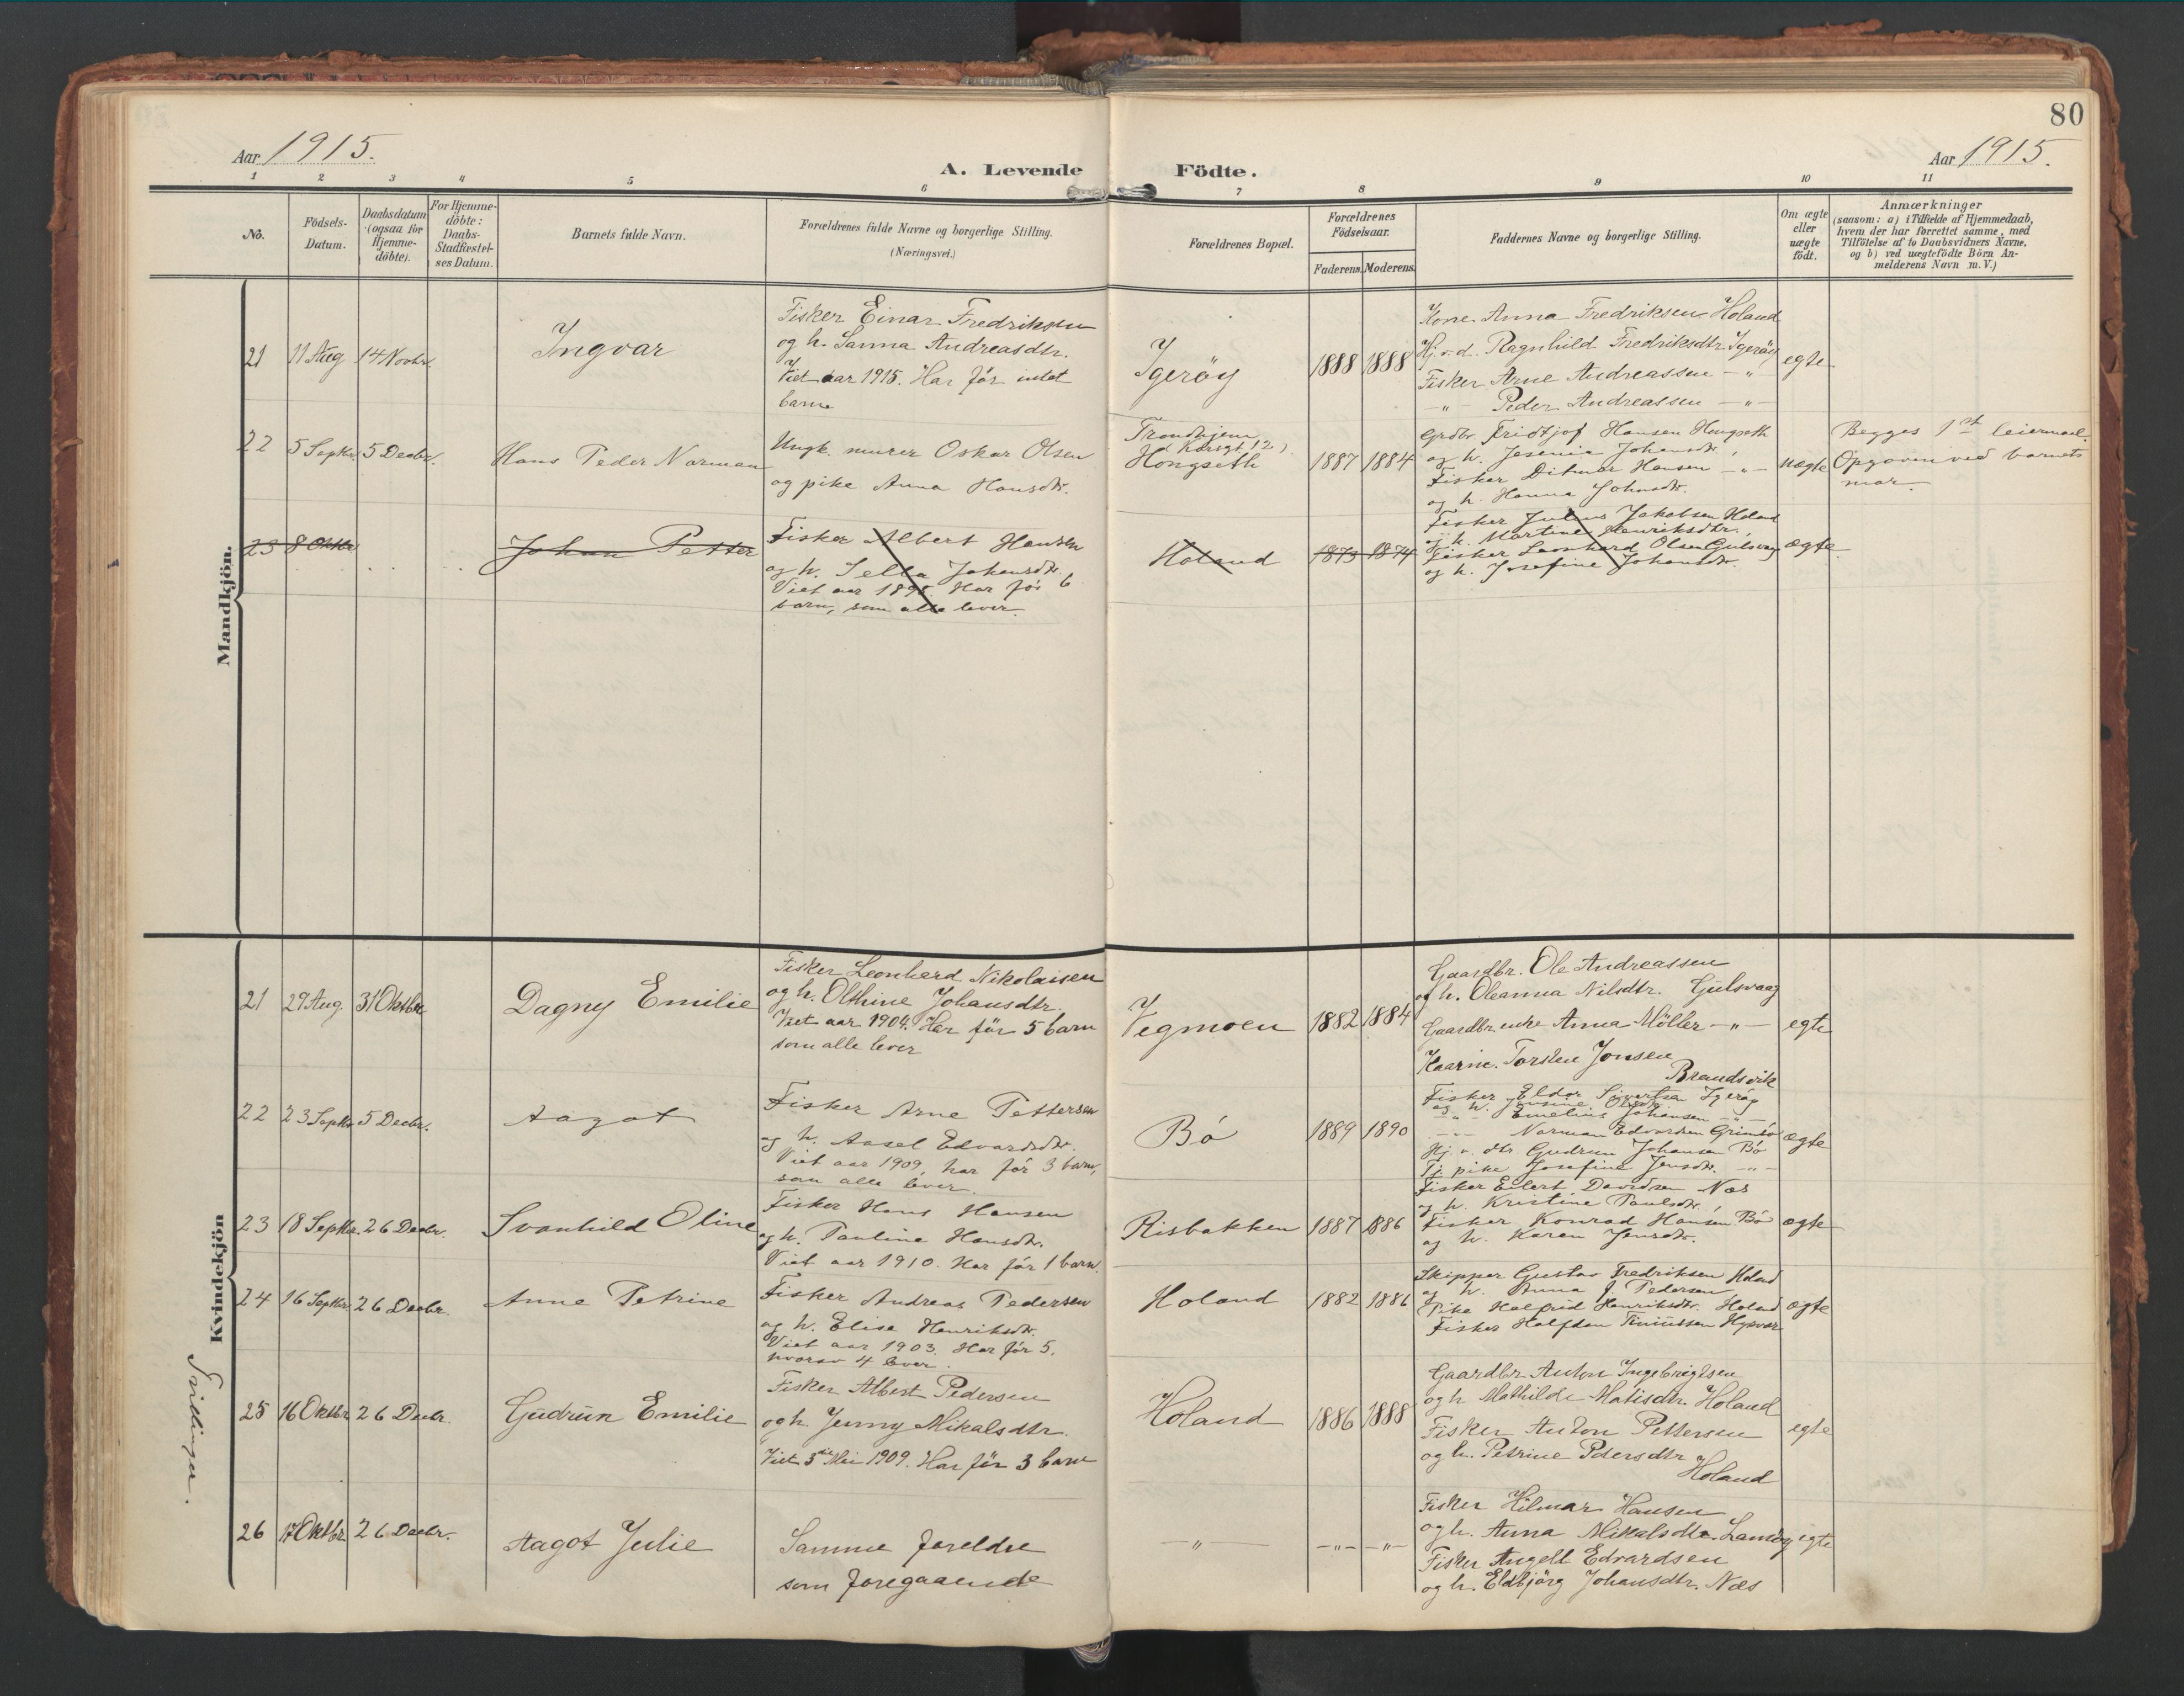 80
Aar 1915.
A. Levende Födte.
Aar 1915.
1 2 3 4 5 6 7 8 9 10 11
No.
Födsels-
Datum.
Daabsdatum
(ogsaa for
Hjemme-
döbte).
For Hjemme-
döbte:
Daabs-
Stadfæstel-
ses Datum.
Barnets fulde Navn.
Forældrenes fulde Navne og borgerlige Stilling.
(Næringsvei.)
Forældrenes Bopæl.
Forældrenes
Födselsaar.
Faderens. Moderens.
Faddernes Navne og borgerlige Stilling.
Om ægte
eller
uægte
födt.
Anmærkninger
(saasom: a) i Tilfælde af Hjemmedaab,
hvem der har forrettet samme, med
Tilföielse af to Daabsvidners Navne.
og b) ved uægtefödte Börn An-
melderens Navn m. V.)
Mandkjön.
21 11 Aug 14 Novbr.
Ingvar
Fisker Einar Fredriksen
og h. Sanna Andreasdtr.
Viet aar 1915. Har før intet
barn
Igerøy
1888 1888
Kone Anna Fredriksen Holand
Hj. v. d. Ragnhild Fredriksdtr. Igerøy
Fisker Arne Andreassen — " —
— " — Peder Andreassen — " —
egte
22 5 Septbr. 5 Decbr.
Hans Peder Norman
Ungk. murer Oskar Olsen
og pike Anna Hansdtr.
Trondhjem
Hongseth
1887 1884
Grdbr. Fridtjof Hansen Hongseth
og h. Johansdtr.
Fisker Ditmar Hansen — " —
og h. Hanna Johnsdtr.
uægte
Begges 1st leiermaal.
Opgaven ved barnets
mor.
23 8 Oktbr
Johan Petter
Fisker Albert Hansen
og h. Sella Johansdtr.
Viet aar 1895. Har før 6
barn, som alle lever.
Holand
1873 1874
Fisker Julius Jakobsen Holand
og h. Martine Henriksdtr.
Fisker Leonhard Olsen Gulsvaag
og h. Josefine Johansdtr.
ægte
Kvindekjön
21 29 Aug. 31 Oktbr.
Dagny Emilie
Fisker Leonherd Nikolaisen
og h. Olthine Johansdtr.
Viet aar 1904. Har før 5 barn
som alle lever
Vegmoen
1882 1884
Gaardbr. Ole Andreassen
og h. Oleanna Nilsdtr. Gulsvaag
Gaardbr. enke Anna Möller — " —
Torsten Jonsen
Brandsvik
egte
22 23 Septbr. 5 Decbr.
Aagot
Fisker Arne Pettersen
og h. Aasel Edvardsdtr.
Viet aar 1909, har før 3 barn,
som alle lever.
Bø
1889 1890
Fisker Eldor Sivertsen Igerøy
og h. Jensine Olsdtr.
— " — Emelius Johansen — " —
— " — Norman Edvardsen
Hj. v. dtr. Gudrun Johansen Bø
Tj. pike Josefine Jensdtr. — " —
ægte
23 18 Septbr. 26 Decbr.
Svanhild Oline
Fisker Hans Hansen
og h. Pauline Hansdtr.
Viet aar 1910. Har før 1 barn.
Risbakken
1887 1886
Fisker Eilert Davidsen Næs
og h. Kristine Paulsdtr.
Fisker Konrad Hansen Bø
og h. Karen Jensdtr.
ægte
24 16 Septbr. 26 Decbr.
Anne Petrine
Fisker Andreas Pedersen
og h. Elise Henriksdtr.
Viet aar 1903. Har før 5,
hvorav 4 lever.
Holand
1882 1886
Skipper Gustav Fredriksen Holand
og h. Anna J. Pedersen
Pike Halfrid Henriksdtr. Holand
Fisker Halfdan Hysvær
ægte
Tvillinger.
25 16 Oktbr. 26 Decbr.
Gudrun Emilie
Fisker Albert Pedersen
og h. Jenny Mikalsdtr.
Viet 5te Mai 1909. Har før 3 barn
Holand
1886 1888
Gaardbr Anton Ingebrigtsen
og h Mathilde Matisdtr. Holand
Fisker Anton Pettersen
og h. Petrine Pedersdtr
Holand
egte
26 17 Oktbr. 26 Decbr.
Aagot Julie
Samme foreldre
som foregaaende
— " — — " — — " —
Fisker Hilmar Hansen
og h. Anna Mikalsdtr.
Fisker Angell Edvardsen
og h. Eldbjørg Johansdtr. Næs
egte